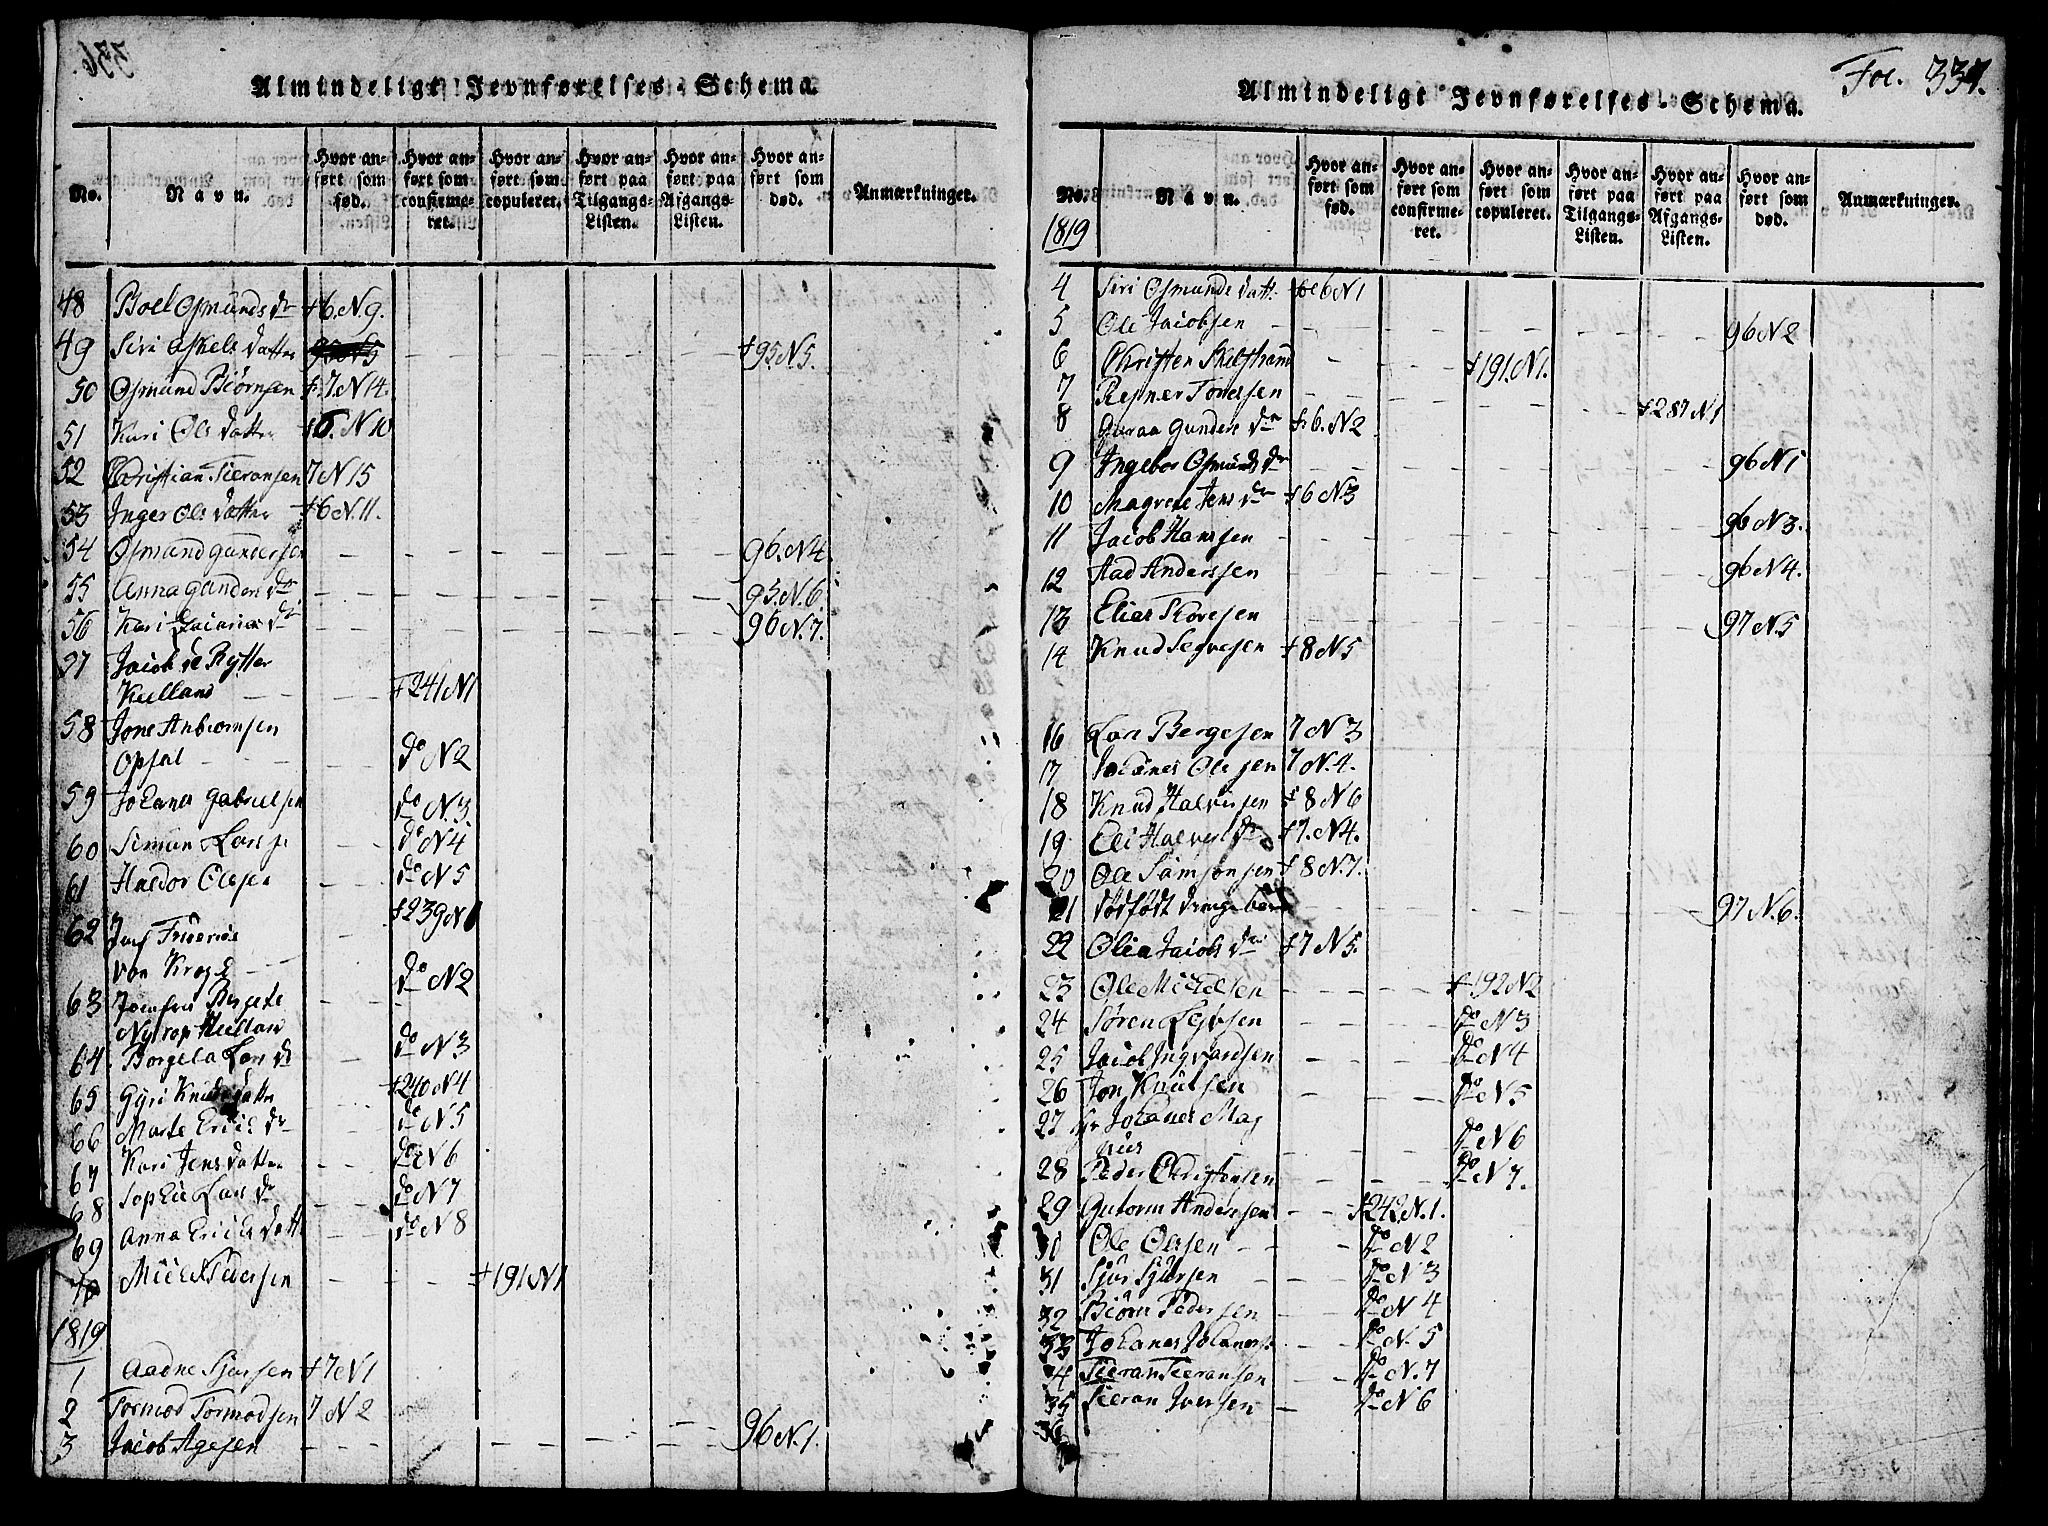 336.
Almindeligt Jevnførelses-Schema.
No.
Navn.
Hvor anført som fød.
Hvor anført som confirmeret.
Hvor anført som copuleret.
Hvor anført paa Tilgangs-Listen.
Hvor anført paa Afgangs-Listen.
Hvor anført som død.
Anmærkninger.
48 Boel Osmunds dr +6.N9.
49 Siri Askels datter +95N5.
50 Osmund Biörnsen +7.N14.
51 Kari Ols datter +6.N10
52 Christian Tieransen 7N15
53 Inger Ols datter +6N.11.
54 Osmund gundersen 96.N4
55 Anna gunders dr 95.N.6
56 Kari dr 96N.7.
57 Jacob de Rytter
Kielland +241N1
58 Jone Anbiornsen
Opsal do N2
59 Johanes gabrielsen do N.3.
60 Simon Lars do N4
61 Haldor Olsen do N5
62 Friderich
von Krogh +239N1
63 Jomfru Bergete
Nyrop Kielland do N2
64 Borgela Lars dr do N3
65 Gyri Knuds datter +240N4
66 Marte Erichs dr do N5
67 Kari Jens datter do N6
68 Sophie Lars dr do N7
69 Anna Erichs datt do N8
70 Michel Pedersen +191.N1
1819
1 Aadne Sjursen +7N1
2 Tormod Tormodsen 7 N2
3 Jacob Agesen 96N.1.
Fol. 337.
Almindeligt Jevnførelses-Schema.
No.
1819
Navn.
Hvor anført som fød.
Hvor anført som confirmeret.
Hvor anført som copuleret.
Hvor anført paa Tilgangs-Listen.
Hvor anført paa Afgangs-Listen.
Hvor anført som død.
Anmærkninger.
4 Siri Osmunds datt. 6N1
5 Ole Jacobsen 96N2
6 Christen +191.N1.
7 Resner Toresen +287N1
8 Guraa Gunders dr +6.N2
9 Ingebor Osmunds dr 96N1
10 Magrete Jens dr +6N3
11 Jacob Hansen 96N3.
12 Aad Andersen 96N4.
13 Elias Thoresen 97N5
14 Knud Segvesen +8N5
16 Lars Bergesen 7N3
17 Johanes Olesen 7N.4.
18 Knud Halversen +8N6
19 Eli Halvers dr +7.N4.
20 Ole Samsonsen +8N.7.
21 dödfödt drenge barn 97N.6.
22 Olea Jacobs dr +7N5.
23 Ole Michelsen +192N2
24 Sören do N3
25 Jacob Ingvardsen do N4
26 Jon Knudsen do N5
27 Hr Johanes Mag
nus do N6
28 Peder Christensen do N7.
29 Gutorm Andersen +242N.1.
30 Ole Olsen do N2
31 Sjur Sjursen do N3
32 Biörn Pedersen do N4
33 Johanes Johanes do N.5
34 Tieran Tieransen do N.7
35 Tieran Iversen do N6
36